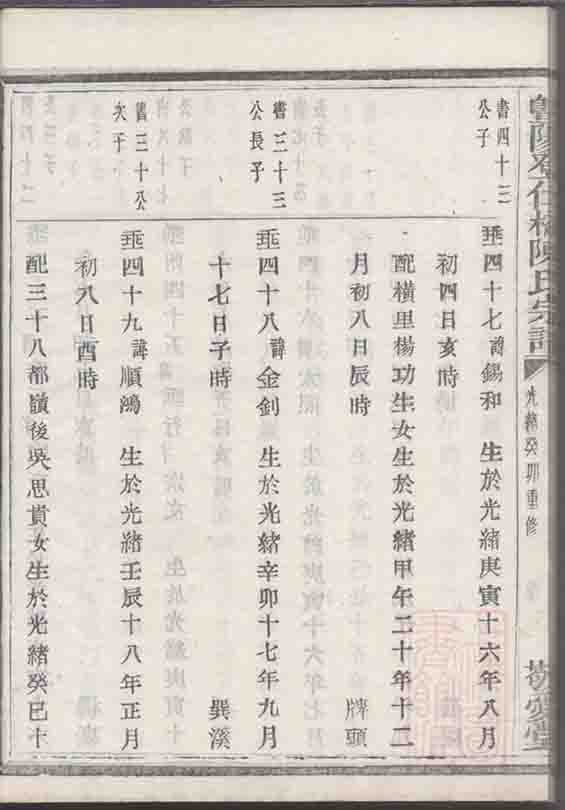 陽
陳氏宗譜
光緒癸卯重修
敬愛堂
書四十三
公子
垂四十七諱錫和 生於光緒庚寅十六年八月
初四日亥時
配橫里楊功生女生於光緒甲午二十年十二
月初八日辰時 牌頭
書三十三
公長子
垂四十八諱金釗 生於光緒辛卯十七年九月
十七日子時 巽溪
書三十公
次子
垂四十九諱順鴻 生於光緒壬辰十八年正月
初八日酉時
配三十八都嶺後吳思貴女生於光緒癸巳十